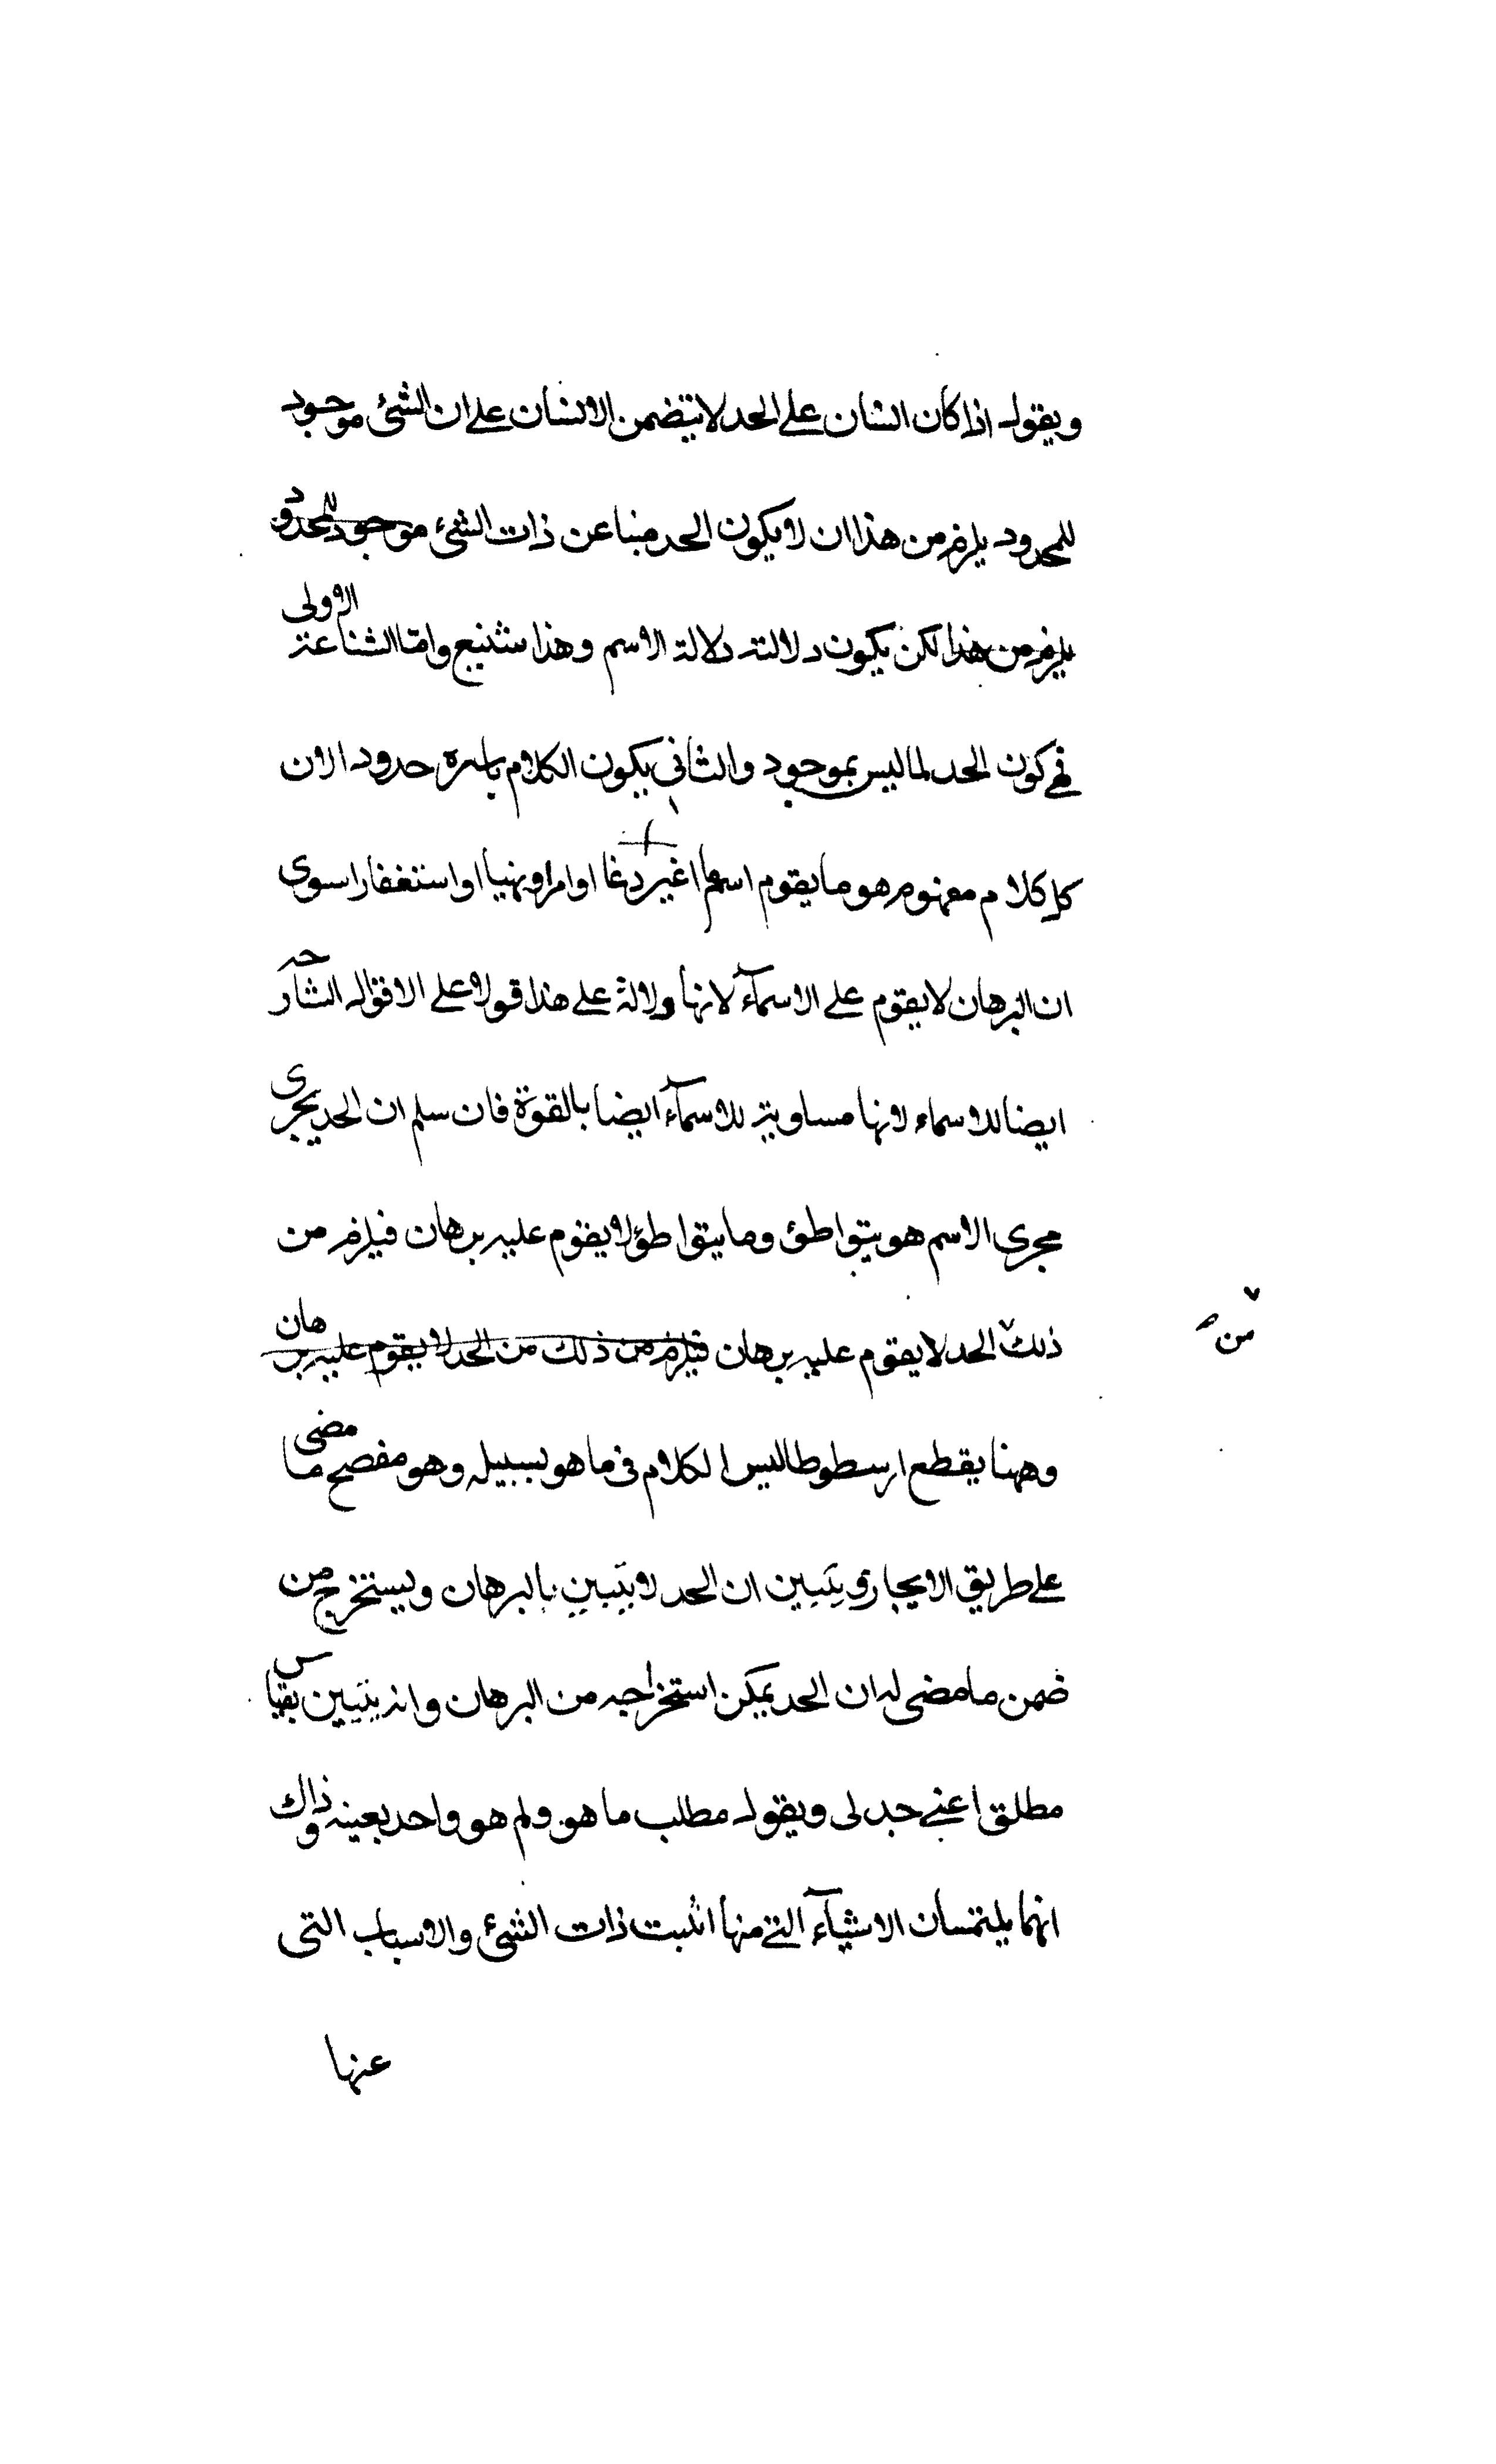 ويقول اذا كان الشان على الحد لا يتضمن الانسان على ان الشئ موجود
للمحدود يلزم من هذا ان لا يكون الحد مبنا عن ذات الشئ موجود للمحدود
يلزم من هذا لكن يكون دلالته دلالة الاسم وهذا شنيع واما الشناعة الاولى
في كون الحد لما ليس بموجود والثاني يكون الكلام باسره حدود الان
كل كلام مفهوم هو ما يقوم اسما غير دغا او امرا ونهيا او استغفارا سوى
ان البرهان لا يقوم على الاسمآء لانها ولالة على هذا قولا على الاقوال الشارحه
ايضا للاسماء لانها مساوية للاسمآء ايضا بالقوة فان سلم ان الحد يجرى
مجرى الاسم هو يتواطئ وما يتواطؤ لا يقوم عليه برهان فيلزم من
ذلك الحد لا يقوم عليه برهان فيلزم من ذلك من الحد لا يقوم عليه برهان
من
وههنا يقطع ارسطوطاليس الكلام فى ما هو بسبيله وهو مفصح ما مضى
على طريق الايجاري يتبين ان الحد لا يتبين بالبرهان ويستخرج من
ضمن ما مضى له ان الحد يمكن استخراجه من البرهان وانه يتبين بقياس
مطلق اعني جدلى ويقول مطلب ما هو ولم هو واحد بعينه وذاك
انهما يلتمسان الاشيآء التي منها اثبت ذات الشئ والاسباب التى
عنها